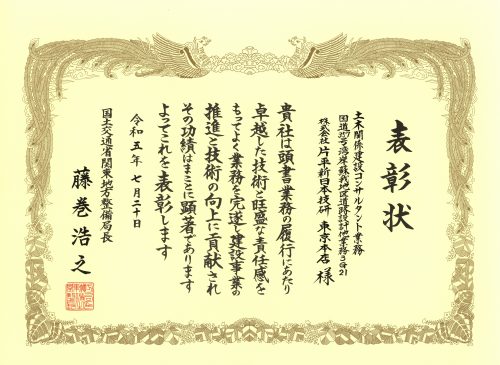 表彰状
土木関係建設コンサルタント業務
国道357号湾岸蘇我地区道路設計他業務3G21
株式会社片平新日本技研 東京本店 様
貴社は頭書業務の履行にあたり
卓越した技術と旺盛な責任感を
もってよく業務を完遂し建設事業の
推進と技術の向上に貢献され
その功績はまことに顕著であります
よってこれを表彰します
令和五年 七月二十日
国土交通省関東地方整備局長
藤巻浩之